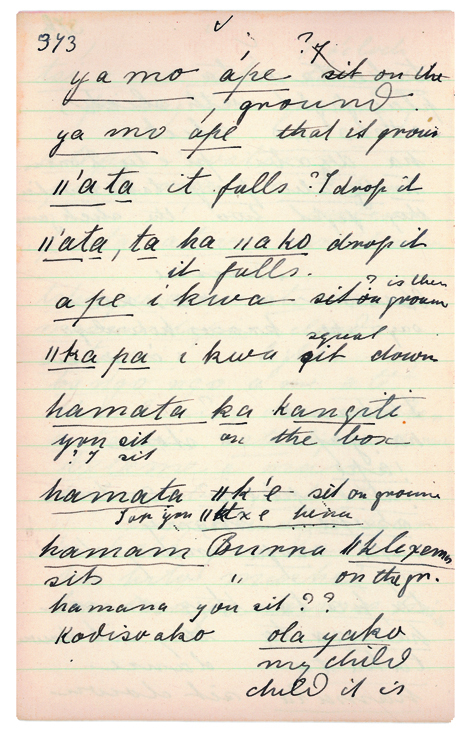 373
ya mo ápe ? I sit on the
ground
ya mo ápé that is groun
ǁ'ata it falls ? I drop it
ǁata, ta ha ǁako drop it
it falls.
? is then
ape ikwa sit on groun
squal
ǁka pa i kwa sit down
hamata ka kangiti
you sit on the box
? ? I sit
hamata ǁk'e sit on groun
I or you ǁxe hina
hamam Burna ǁklixem
sits " on the gr.
hamana you sit ? ?
Kodisoako ola yako
my child
child it is